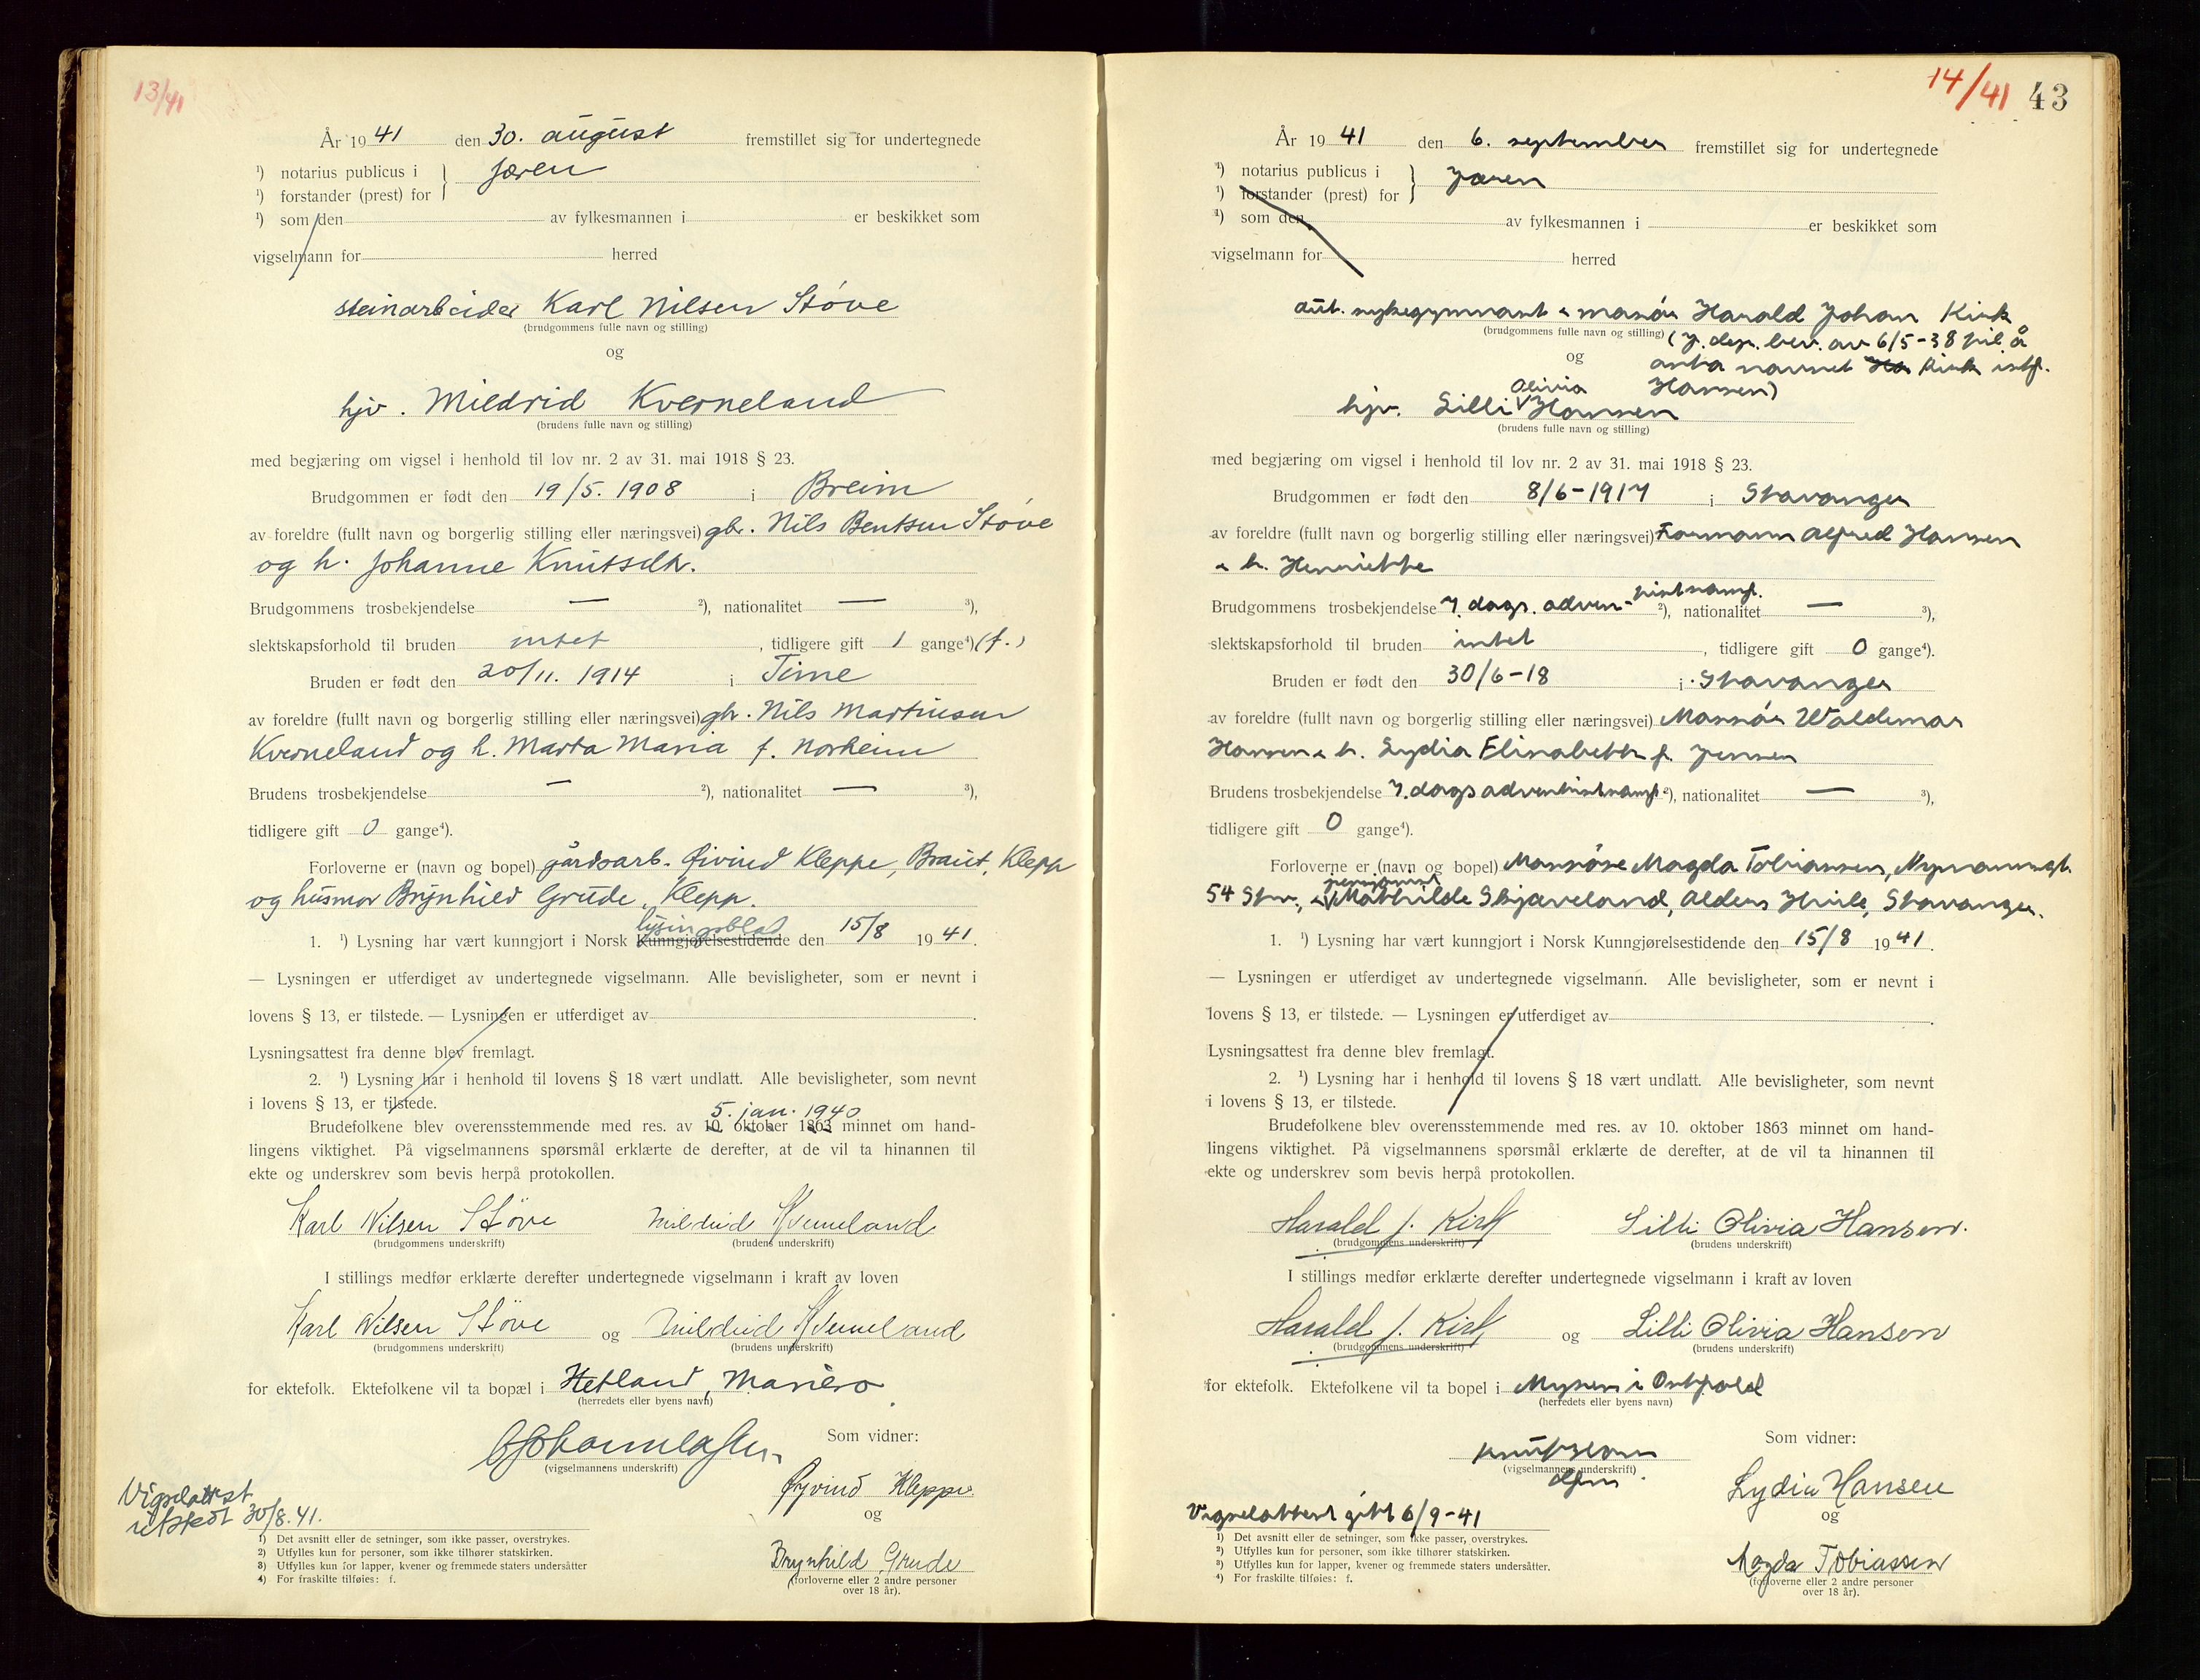 13/41
År 1941 den 30. august fremstillet sig for undertegnede
¹) notarius publicus i } Jæren
¹) forstander (prest) for
¹) som den av fylkesmannen i er beskikket som
vigselmann for herred
steinarbeider Karl Nilsen Støve
(brudgommens fulle navn og stilling)
og
hjv. Mildrid Kverneland
(brudens fulle navn og stilling)
med begjæring om vigsel i henhold til lov nr. 2 av 31. mai 1918 § 23.
Brudgommen er født den 19/5. 1908 i Breim
av foreldre (fullt navn og borgerlig stilling eller næringsvei) gbr. Nils Bentsen Støve
og h. Johanne Knutsdtr.
Brudgommens trosbekjendelse — ²), nationalitet — ³),
slektskapsforhold til bruden intet , tidligere gift 1 gange⁴) (f.)
Bruden er født den 20/11. 1914 i Time
av foreldre (fullt navn og borgerlig stilling eller næringsvei) gbr. Nils Martinsen
Kverneland og h. Marta Maria f. Norheim
Brudens trosbekjendelse — ²), nationalitet — ³),
tidligere gift 0 gange⁴).
Forloverne er (navn og bopel) gårdsarb. Øivind Kleppe, Braut, Klepp
og husmor Brynhild Grude, Klepp.
lysingsblad
1. ¹) Lysning har vært kunngjort i Norsk Kunngjørelsestidende den 15/8 1941.
— Lysningen er utferdiget av undertegnede vigselmann. Alle bevisligheter, som er nevnt i
lovens § 13, er tilstede. — Lysningen er utferdiget av .
Lysningsattest fra denne blev fremlagt.
2. ¹) Lysning har i henhold til lovens § 18 vært undlatt. Alle bevisligheter, som nevnt
i lovens § 13, er tilstede.
5. jan. 1940
Brudefolkene blev overensstemmende med res. av 10. oktober 1863 minnet om hand-
lingens viktighet. På vigselmannens spørsmål erklærte de derefter, at de vil ta hinannen til
ekte og underskrev som bevis herpå protokollen.
Karl Nilsen Støve Mildrid Kverneland
(brudgommens underskrift) (brudens underskrift)
I stillings medfør erklærte derefter undertegnede vigselmann i kraft av loven
Karl Nilsen Støve og Mildrid Kverneland
(brudgommens underskrift) (brudens underskrift)
for ektefolk. Ektefolkene vil ta bopæl i Hetland, Mariero
(herredets eller byens navn)
Som vidner:
(vigselmannens underskrift)
Øyvind Kleppe
og
Brynhild Grude
(forloverne eller 2 andre personer
over 18 år).
Vigselattest
utstedt 30/8.41.
¹) Det avsnitt eller de setninger, som ikke passer, overstrykes.
²) Utfylles kun for personer, som ikke tilhører statskirken.
³) Utfylles kun for lapper, kvener og fremmede staters undersåtter
⁴) For fraskilte tilføies: f.
14/41 43
År 1941 den 6. september fremstillet sig for undertegnede
¹) notarius publicus i } Jæren
¹) forstander (prest) for
¹) som den av fylkesmannen i er beskikket som
vigselmann for herred
aut. sykegymnast & massør Harald Johan Kirk
(brudgommens fulle navn og stilling) (J. dep. bev. av 6/5-38 til å
og anta navnet Kirk istf.
Hansen)
Olivia
hjv. Lilli Hansen
(brudens fulle navn og stilling)
med begjæring om vigsel i henhold til lov nr. 2 av 31. mai 1918 § 23.
Brudgommen er født den 8/6-1917 i Stavanger
av foreldre (fullt navn og borgerlig stilling eller næringsvei) Formann Alfred Hansen
& h. Henriette
Brudgommens trosbekjendelse 7. dags. adven-tistsamf. ²), nationalitet — ³),
slektskapsforhold til bruden intet , tidligere gift 0 gange⁴).
Bruden er født den 30/6-18 i Stavanger
av foreldre (fullt navn og borgerlig stilling eller næringsvei) Massør Waldemar
Hansen & h. Lydia Elisabeth f. Jensen
Brudens trosbekjendelse 7. dags adventistsamf. ²), nationalitet — ³),
tidligere gift 0 gange⁴).
Forloverne er (navn og bopel) Massøse Magda Tobiassen, Nymannsgt.
54 Stv., & Mathilde Skjæveland, Aldens Hvile, Stavanger.
1. ¹) Lysning har vært kunngjort i Norsk Kunngjørelsestidende den 15/8 1941.
— Lysningen er utferdiget av undertegnede vigselmann. Alle bevisligheter, som er nevnt i
lovens § 13, er tilstede. — Lysningen er utferdiget av .
Lysningsattest fra denne blev fremlagt.
2. ¹) Lysning har i henhold til lovens § 18 vært undlatt. Alle bevisligheter, som nevnt
i lovens § 13, er tilstede.
Brudefolkene blev overensstemmende med res. av 10. oktober 1863 minnet om hand-
lingens viktighet. På vigselmannens spørsmål erklærte de derefter, at de vil ta hinannen til
ekte og underskrev som bevis herpå protokollen.
Harald J. Kirk Lilli Olivia Hansen.
(brudgommens underskrift) (brudens underskrift)
I stillings medfør erklærte derefter undertegnede vigselmann i kraft av loven
Harald J. Kirk og Lilli Olivia Hansen
(brudgommens underskrift) (brudens underskrift)
for ektefolk. Ektefolkene vil ta bopel i Mysen i Østfold
(herredets eller byens navn)
Som vidner:
(vigselmannens underskrift)
Lydia Hansen
og
Magda Tobiassen
(forloverne eller 2 andre personer
over 18 år).
Vigselattest gitt 6/9-41
¹) Det avsnitt eller de setninger, som ikke passer, overstrykes.
²) Utfylles kun for personer, som ikke tilhører statskirken.
³) Utfylles kun for lapper, kvener og fremmede staters undersåtter.
⁴) For fraskilte tilføies: f.